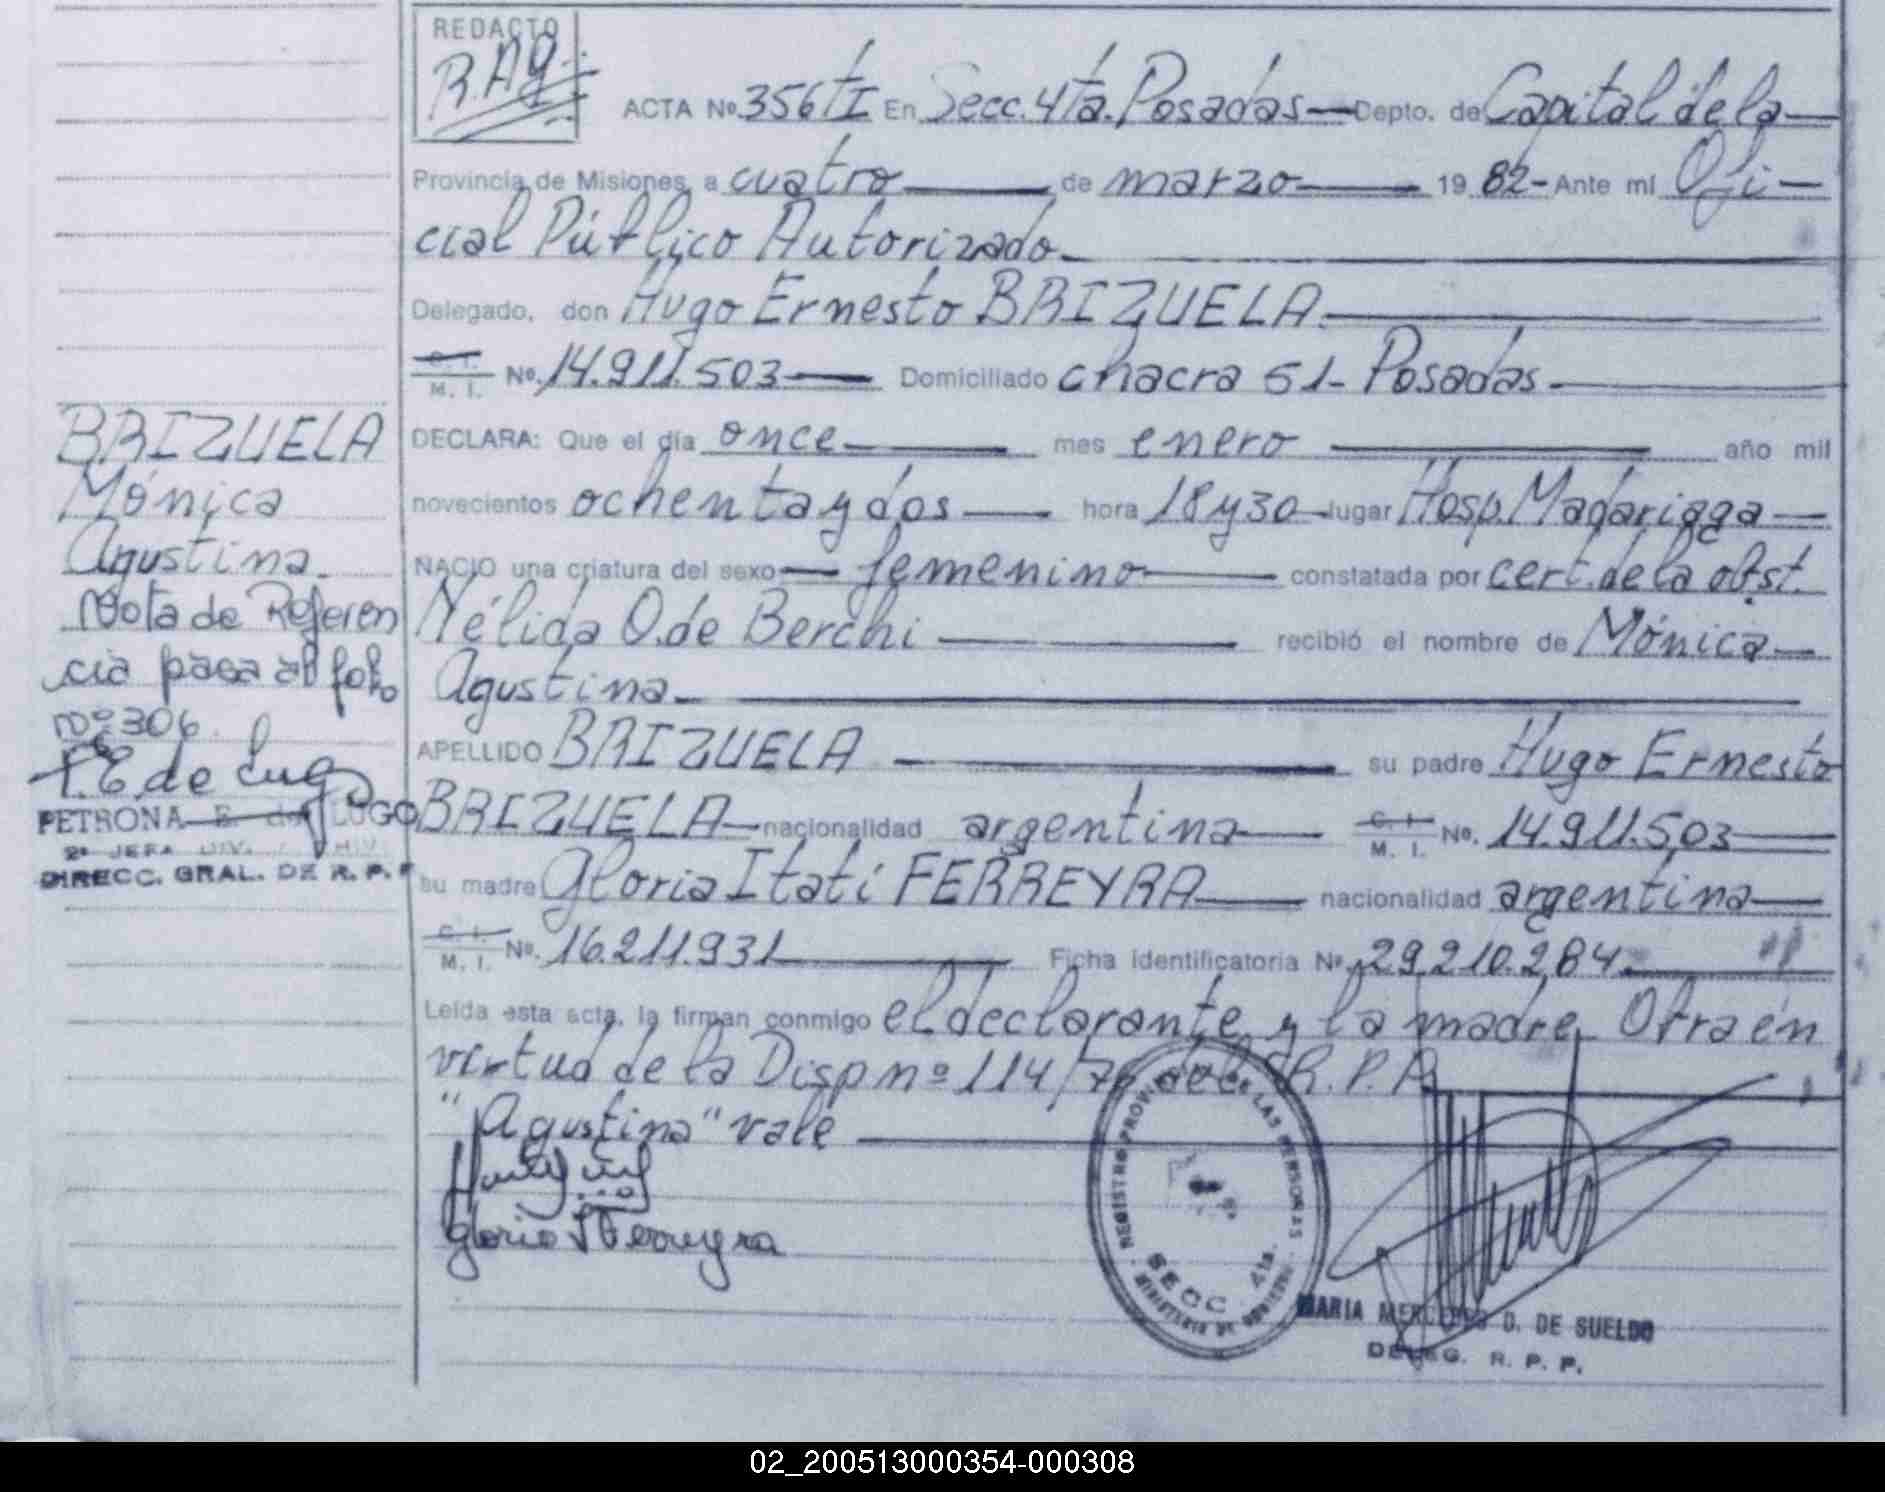 REDACTO
R.Ag.
ACTA Nº 356 tI En Secc. 4ta. Posadas — Depto. de Capital de la —
Provincia de Misiones, a cuatro — de marzo — 19 82 - Ante mí Ofi —
cial Público Autorizado.
Delegado, don Hugo Ernesto BRIZUELA.
C. I.
M. I. Nº. 14.911.503 — Domiciliado chacra 51 - Posadas. —
DECLARA: Que el día once — mes enero — año mil
novecientos ochenta y dos — hora 18 y 30 - lugar Hosp. Madariaga —
NACIO una criatura del sexo — femenino — constatada por cert. de la obst.
Nélida O. de Berchi — recibió el nombre de Mónica —
Agustina. —
APELLIDO BRIZUELA — su padre Hugo Ernesto
BRIZUELA — nacionalidad argentina — C. I.
M. I. Nº. 14.911.503 —
su madre Gloria Itatí FERREYRA — nacionalidad argentina —
C. I.
M. I. Nº. 16.211.931 — Ficha identificatoria Nº. 29.210.284. —
Leída esta acta, la firman conmigo el declarante y la madre. Otra en
virtud de la Disp nº 114/76 del R.P.P.
"Agustina" vale —
Gloria I Ferreyra
BRIZUELA
Mónica
Agustina.
Nota de Referen
cia pasa al folio
nº 306.
P. E. de Lugo
PETRONA E. de LUGO
2ª JEFA DIV. ARCHIVO
DIRECC. GRAL. DE R. P. P
REGISTRO PROVINCIAL DE LAS PERSONAS
SECC. 4ta.
MINISTERIO DE GOBIERNO
MARIA MERCEDES D. DE SUELDO
DELEG. R. P. P.
02_200513000354-000308